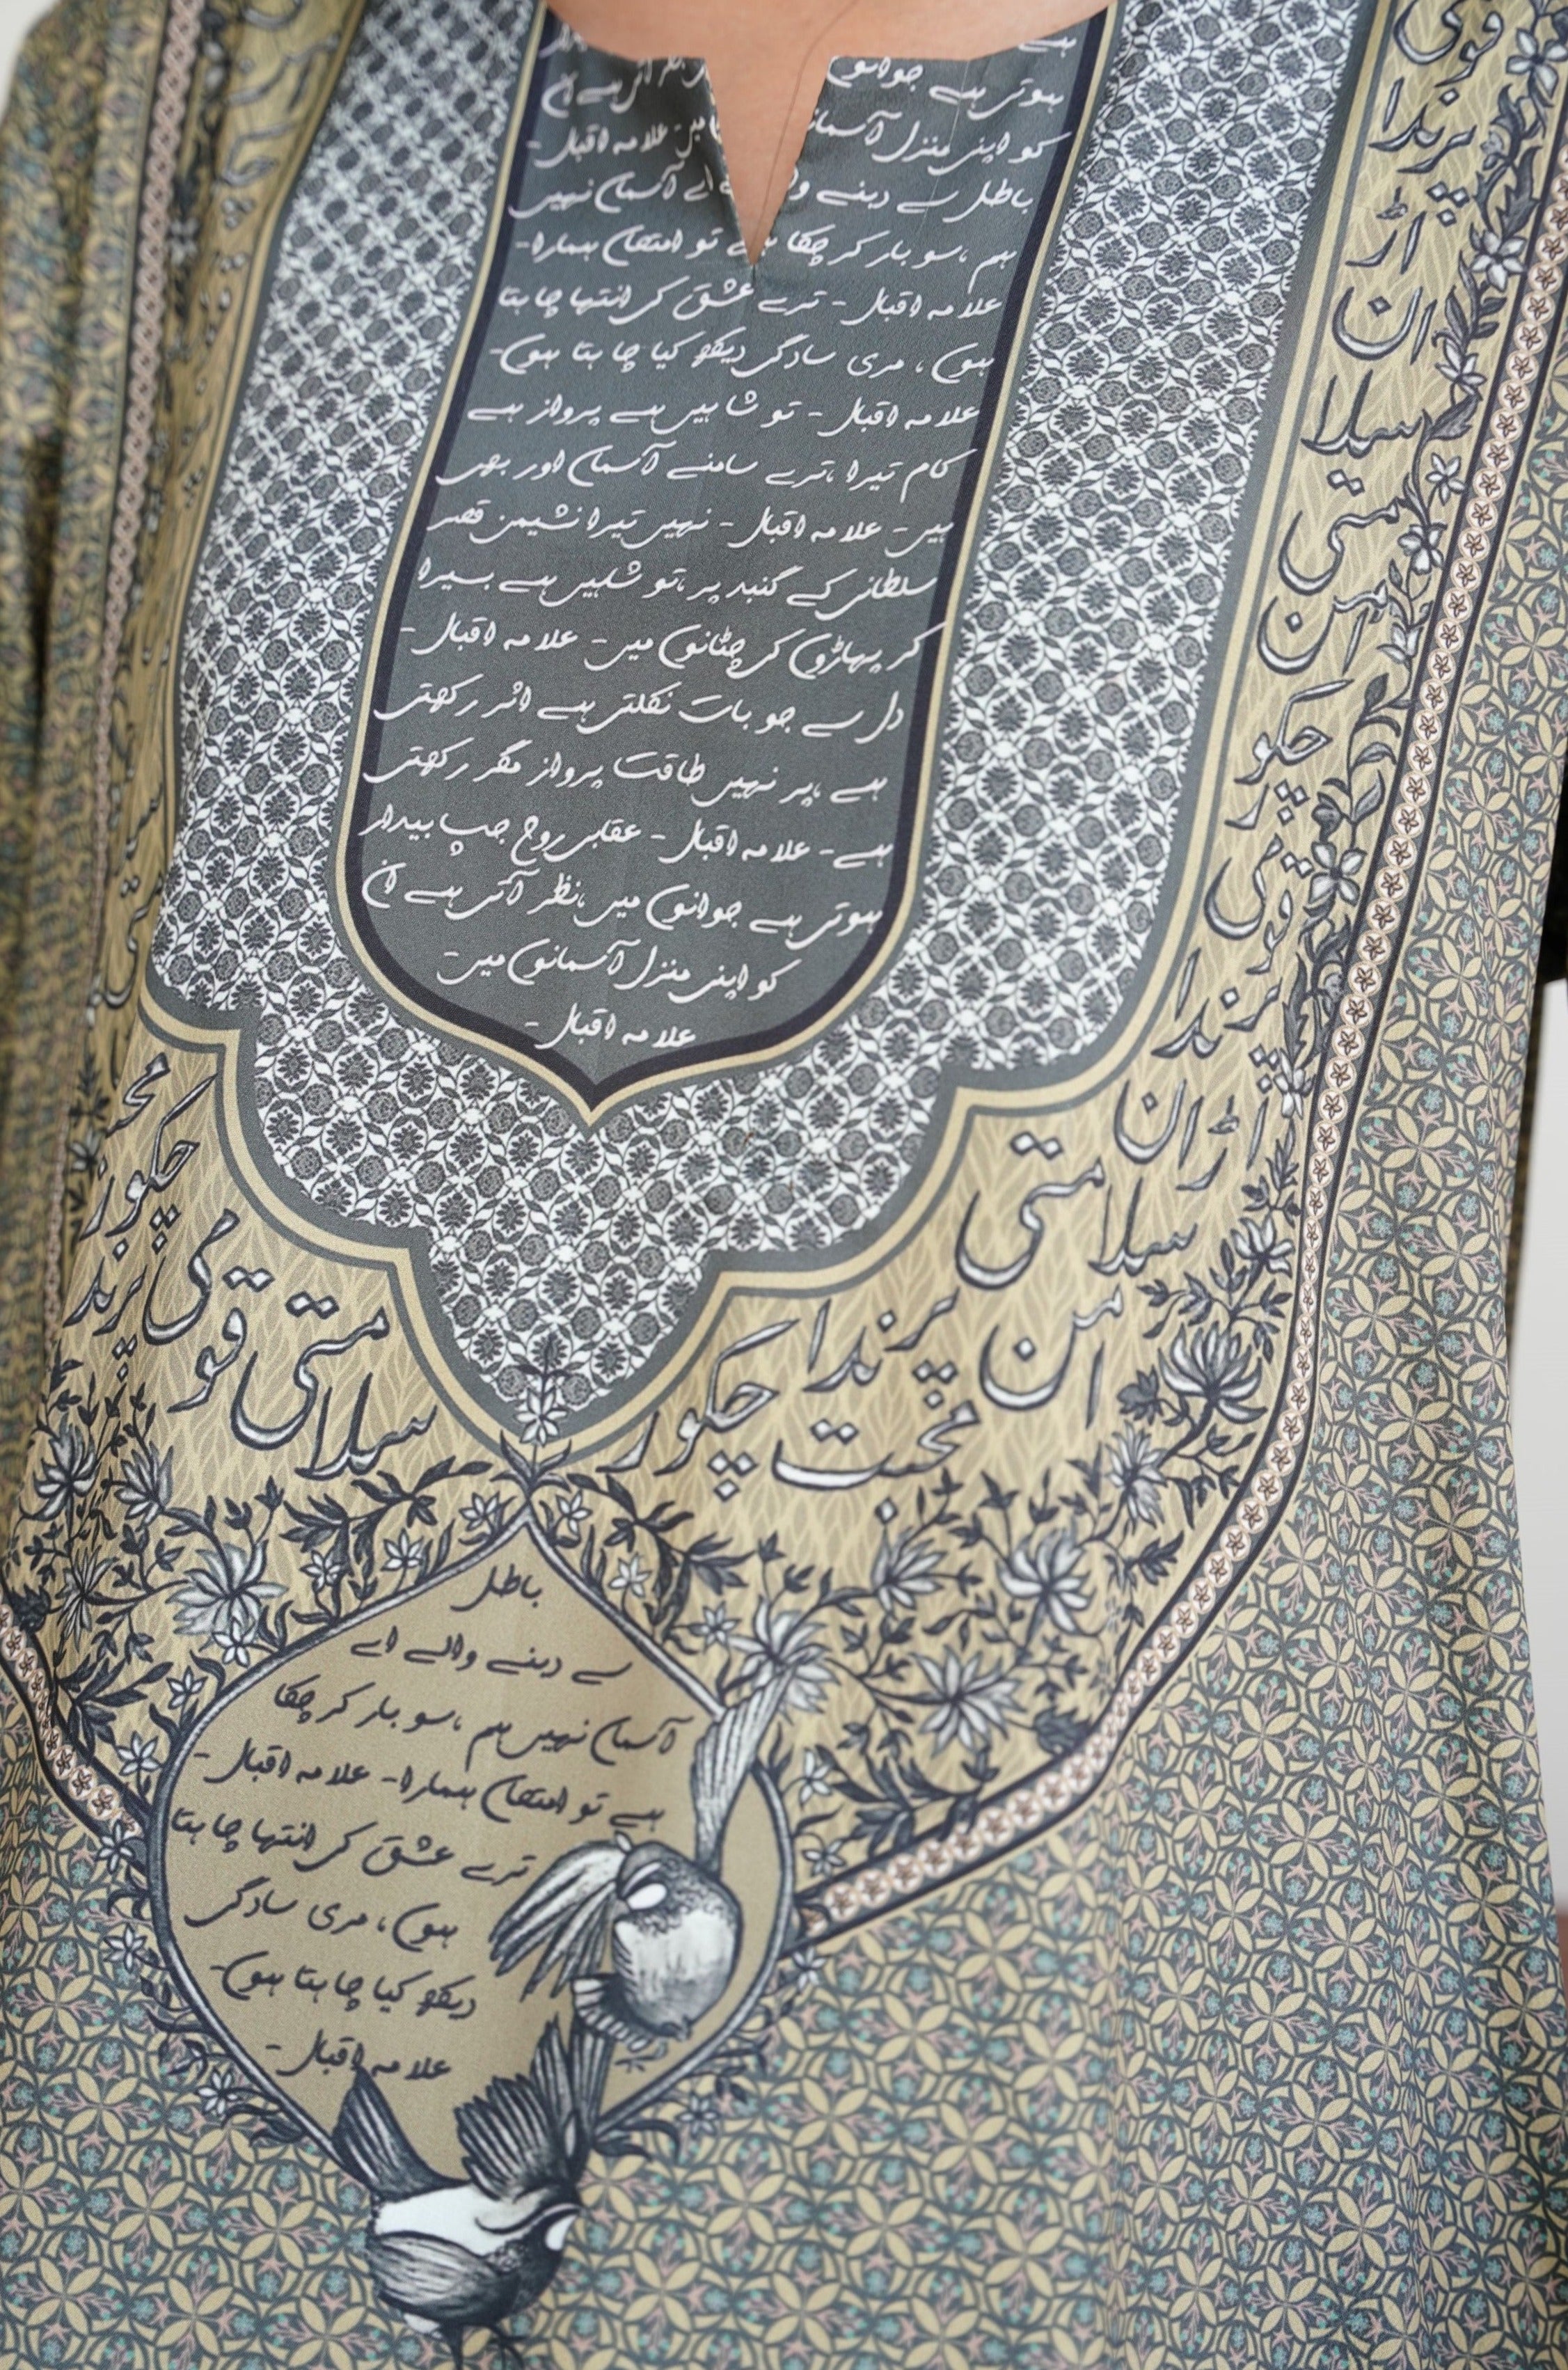 ہوتی ہے جوانوں نظر آتی ہے ان
کو اپنی منزل آسمانوں میں علامہ اقبال -
باطل سے دبنے والے اے آسمان نہیں
ہم ،سو بار کر چکا ہے تو امتحان ہمارا-
علامہ اقبال - ترے عشق کی انتہا چاہتا
ہوں ، مری سادگی دیکھ کیا چاہتا ہوں-
علامہ اقبال - تو شاہیں ہے پرواز ہے
کام تیرا ،ترے سامنے آسمان اور بھی
ہیں - علامہ اقبال - نہیں تیرا نشیمن قصر
سلطانی کے گنبد پر ،تو شاہیں ہے بسیرا
کر پہاڑوں کی چٹانوں میں - علامہ اقبال -
دل سے جو بات نکلتی ہے اثر رکھتی
ہے ،پر نہیں طاقت پرواز مگر رکھتی
ہے - علامہ اقبال - عقابی روح جب بیدار
ہوتی ہے جوانوں میں ،نظر آتی ہے ان
کو اپنی منزل آسمانوں میں -
علامہ اقبال -
قومی
پرندا
اڑان
سیلا
متی
امن
چکور
قومی
پرندا
اڑان
سلا
متی
امن
پرندا
چکور
محبت
چکور
پرند
قومی
سلا
متی
باطل
سے دبنے والے اے
آسمان نہیں ہم ،سو بار کر چکا
ہے تو امتحان ہمارا- علامہ اقبال -
ترے عشق کی انتہا چاہتا
ہوں ، مری سادگی
دیکھ کیا چاہتا ہوں-
علامہ اقبال -